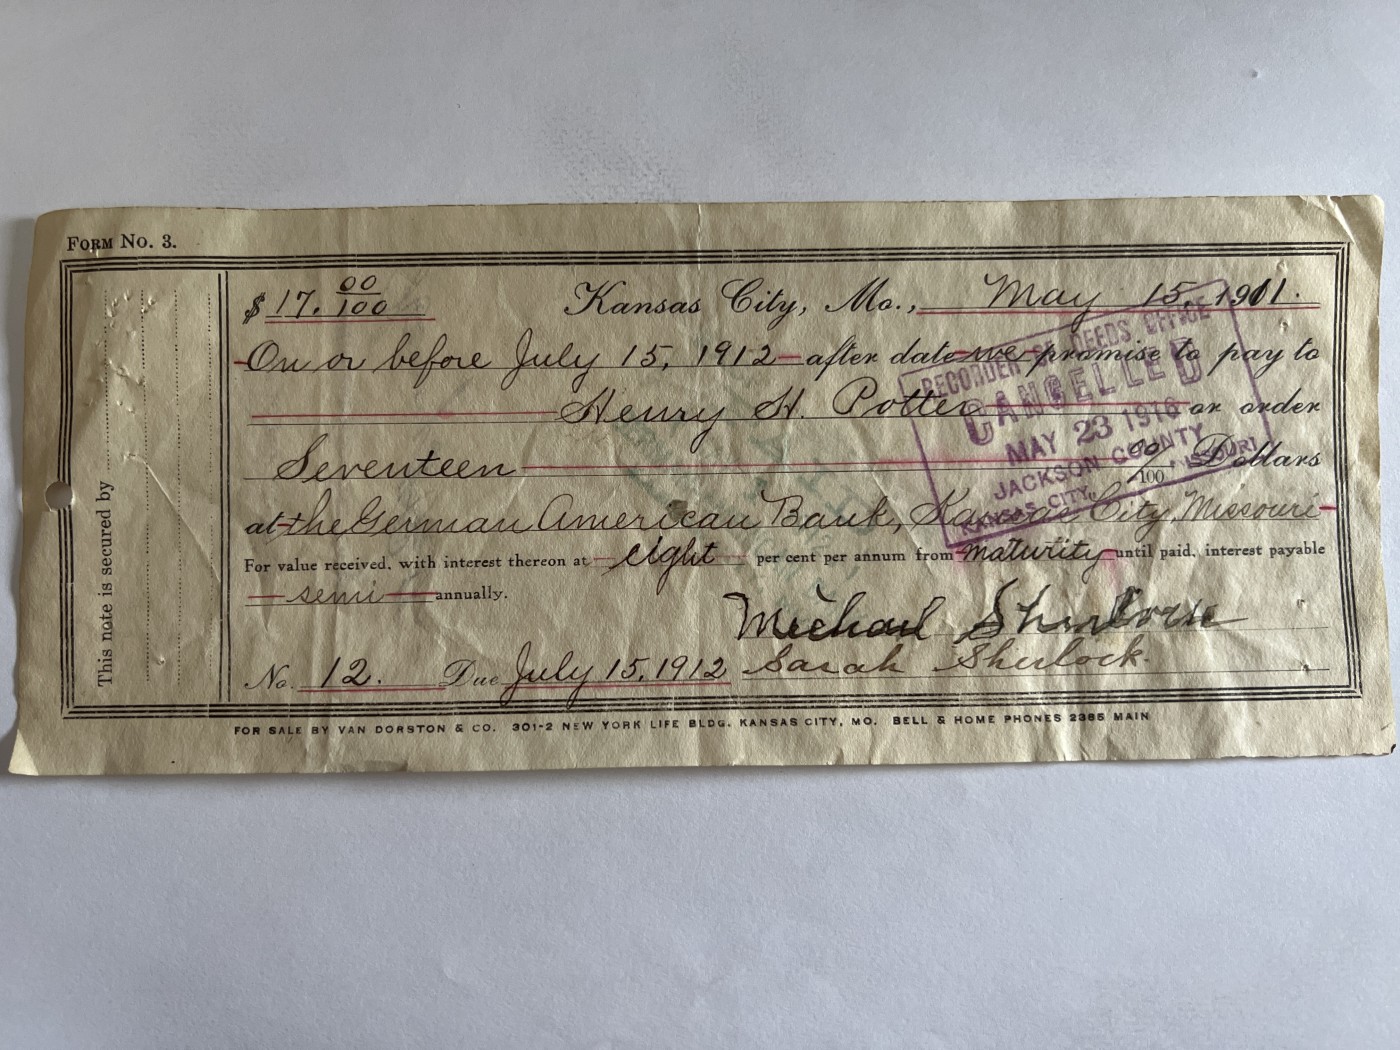 FORM No. 3.
This note is secured by
$ 17. 00/100 Kansas City, Mo., May 15, 1911.
On or before July 15, 1912 after date we promise to pay to
Henry H. Potter or order
Seventeen 00/100 Dollars
at the German American Bank, Kansas City, Missouri
For value received, with interest thereon at eight per cent per annum from maturity until paid, interest payable
semi annually.
Michael
Sarah Sherlock.
No. 12. Due July 15, 1912
FOR SALE BY VAN DORSTON & CO. 301-2 NEW YORK LIFE BLDG. KANSAS CITY, MO. BELL & HOME PHONES 2385 MAIN
RECORDER OF DEEDS OFFICE
CANCELLED
MAY 23 1916
JACKSON COUNTY
KANSAS CITY, MISSOURI